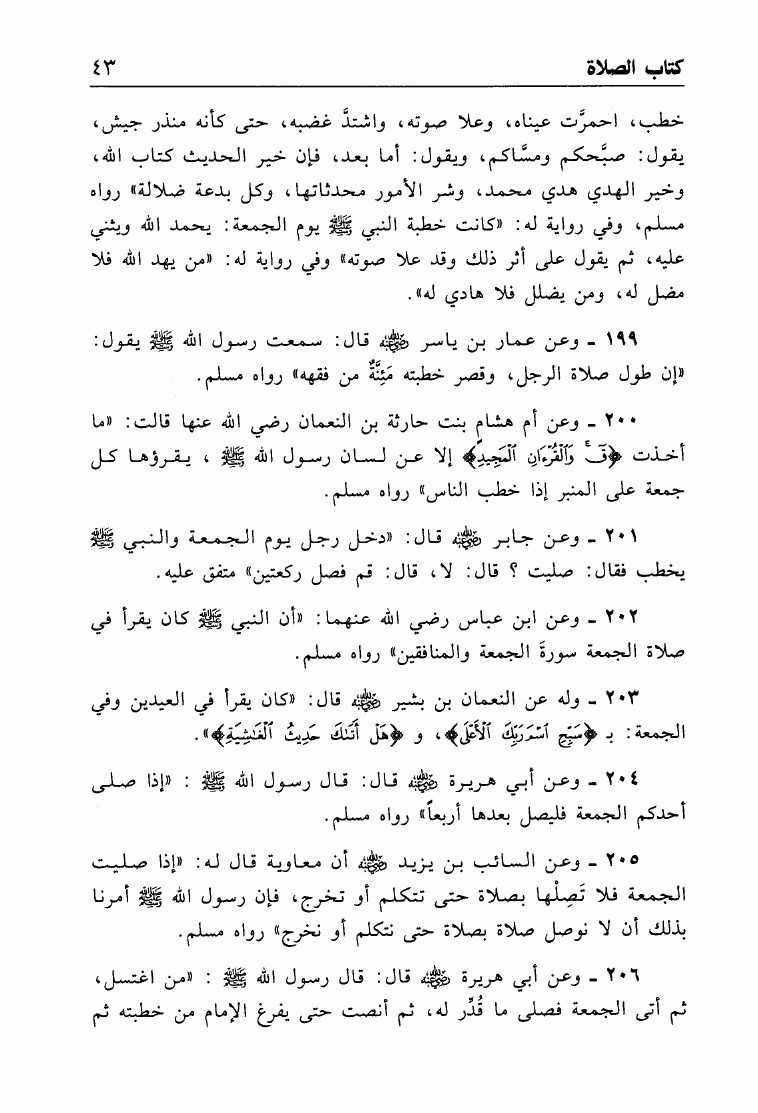 كتاب الصلاة ٤٣
خطب، احمرَّت عيناه، وعلا صوته، واشتدَّ غضبه، حتى كأنه منذر جيش،
يقول: صبَّحكم ومسَّاكم، ويقول: أما بعد، فإن خير الحديث كتاب الله،
وخير الهدي هدي محمد، وشر الأمور محدثاتها، وكل بدعة ضلالة» رواه
مسلم، وفي رواية له: «كانت خطبة النبي ﷺ يوم الجمعة: يحمد الله ويثني
عليه، ثم يقول على أثر ذلك وقد علا صوته» وفي رواية له: «من يهد الله فلا
مضل له، ومن يضلل فلا هادي له».
١٩٩ ـ وعن عمار بن ياسر رضي الله عنه قال: سمعت رسول الله ﷺ يقول:
«إن طول صلاة الرجل، وقصر خطبته مَئِنَّةٌ من فقهه» رواه مسلم.
٢٠٠ ـ وعن أم هشام بنت حارثة بن النعمان رضي الله عنها قالت: «ما
أخذت ﴿قٓ وَٱلْقُرْءَانِ ٱلْمَجِيدِ﴾ إلا عن لسان رسول الله ﷺ ، يقرؤها كل
جمعة على المنبر إذا خطب الناس» رواه مسلم.
٢٠١ ـ وعن جابر رضي الله عنه قال: «دخل رجل يوم الجمعة والنبي ﷺ
يخطب فقال: صليت ؟ قال: لا، قال: قم فصل ركعتين» متفق عليه.
٢٠٢ ـ وعن ابن عباس رضي الله عنهما: «أن النبي ﷺ كان يقرأ في
صلاة الجمعة سورةَ الجمعة والمنافقين» رواه مسلم.
٢٠٣ ـ وله عن النعمان بن بشير رضي الله عنه قال: «كان يقرأ في العيدين وفي
الجمعة: بـ ﴿سَبِّحِ ٱسْمَ رَبِّكَ ٱلْأَعْلَى﴾، و ﴿هَلْ أَتَىٰكَ حَدِيثُ ٱلْغَٰشِيَةِ﴾».
٢٠٤ ـ وعن أبي هريرة رضي الله عنه قال: قال رسول الله ﷺ : «إذا صلى
أحدكم الجمعة فليصل بعدها أربعاً» رواه مسلم.
٢٠٥ ـ وعن السائب بن يزيد رضي الله عنه أن معاوية قال له: «إذا صليت
الجمعة فلا تَصِلْها بصلاة حتى تتكلم أو تخرج، فإن رسول الله ﷺ أمرنا
بذلك أن لا نوصل صلاة بصلاة حتى نتكلم أو نخرج» رواه مسلم.
٢٠٦ ـ وعن أبي هريرة رضي الله عنه قال: قال رسول الله ﷺ : «من اغتسل،
ثم أتى الجمعة فصلى ما قُدِّر له، ثم أنصت حتى يفرغ الإمام من خطبته ثم